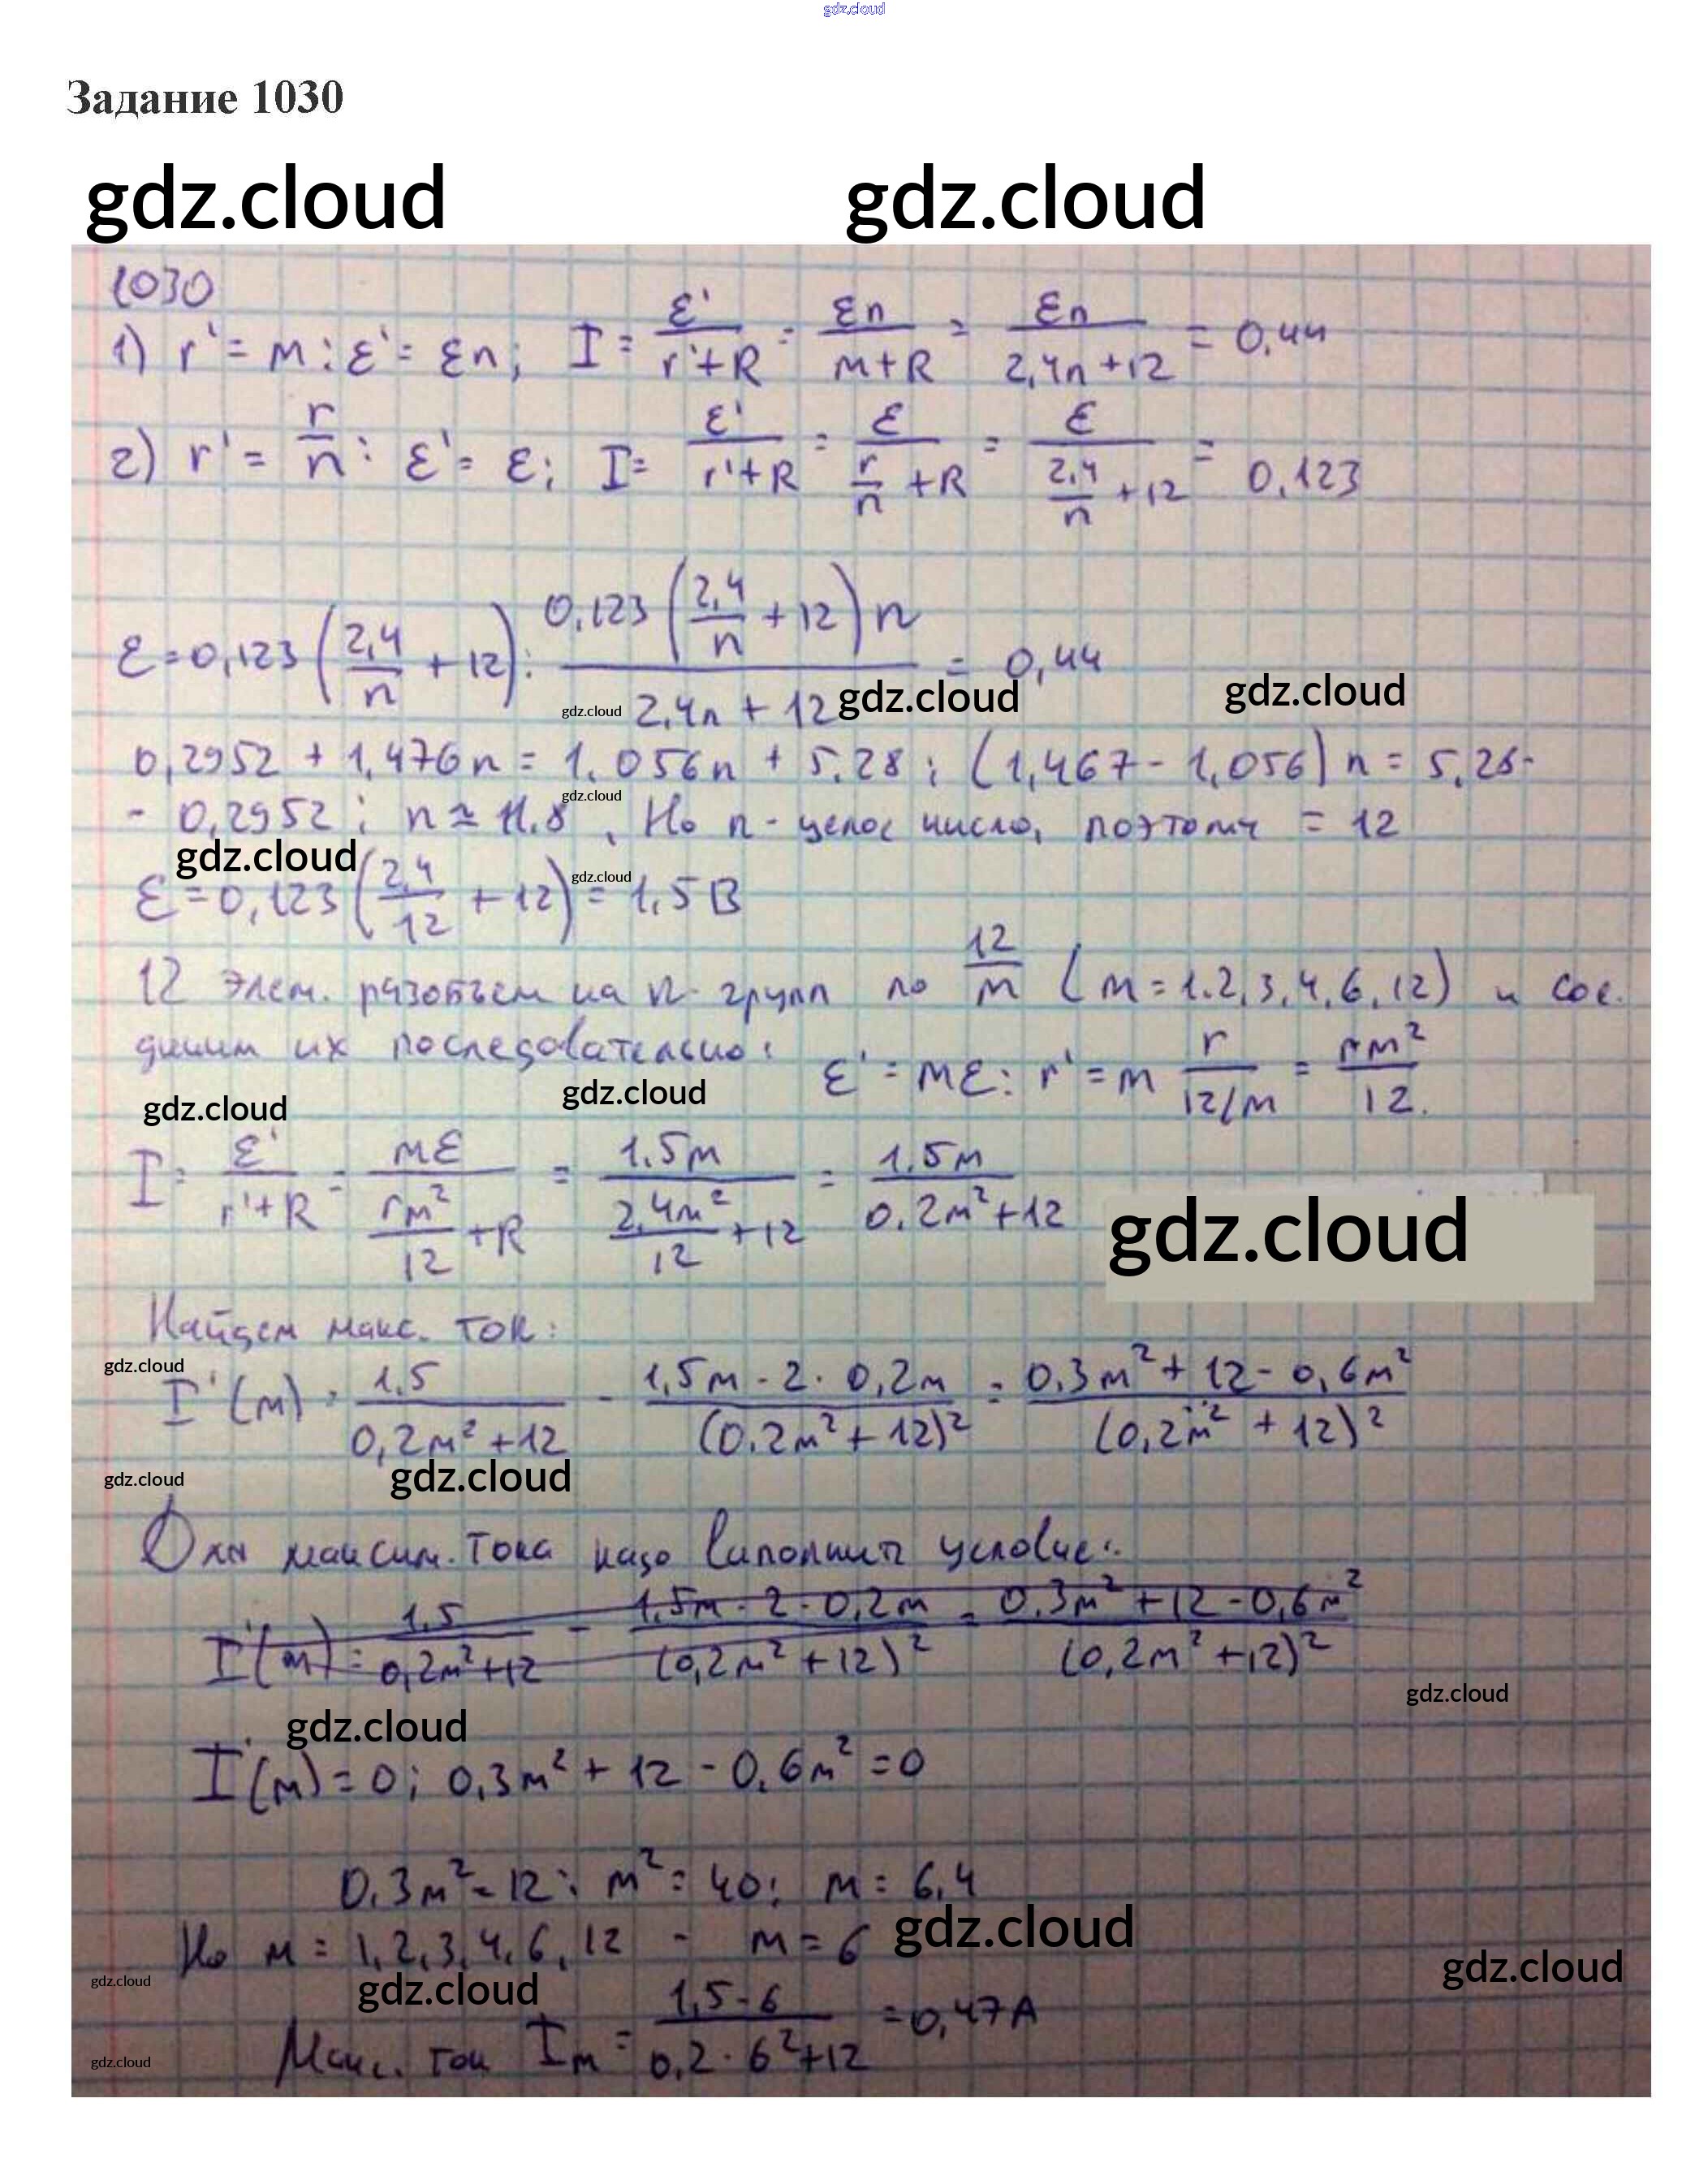 gdz.cloud
Задание 1030
gdz.cloud gdz.cloud
1030
1) r' = m ; ε' = εn; I = ε'/(r'+R) = εn/(m+R) = εn/(2,4n+12) = 0,44
2) r' = r/n ; ε' = ε; I = ε'/(r'+R) = ε/(r/n + R) = ε/(2,4/n + 12) = 0,123
ε = 0,123 (2,4/n + 12); 0,123 (2,4/n + 12) n / (2,4n + 12) = 0,44
gdz.cloud gdz.cloud gdz.cloud
0,2952 + 1,476n = 1,056n + 5,28 ; (1,467 - 1,056) n = 5,28-
gdz.cloud
- 0,2952 ; n ≃ 11,8 , Но n - целое число, поэтому = 12
gdz.cloud gdz.cloud
ε = 0,123 (2,4/12 + 12) = 1,5 В
12 элем. разобьем на n групп по 12/m (m = 1.2,3,4,6,12) и сое.
диним их последовательно: ε' = mε; r' = m r/(12/m) = rm²/12.
gdz.cloud gdz.cloud
I = ε'/(r'+R) = mε/(rm²/12 + R) = 1,5m/(2,4m²/12 + 12) = 1,5m/(0,2m²+12)
gdz.cloud
Найдем макс. ток:
gdz.cloud
I'(m) = 1,5/(0,2m²+12) - 1,5m · 2 · 0,2m/(0,2m²+12)² = (0,3m² + 12 - 0,6m²)/(0,2m² + 12)²
gdz.cloud gdz.cloud
Для максим. тока надо условие:
I'(m) = 1,5/(0,2m²+12) - 1,5m · 2 · 0,2m/(0,2m²+12)² = (0,3m² + 12 - 0,6m²)/(0,2m²+12)²
gdz.cloud
gdz.cloud
I'(m) = 0; 0,3m² + 12 - 0,6m² = 0
0,3m² = 12; m² = 40; m = 6,4
gdz.cloud
Но m = 1,2,3,4,6,12 - m = 6
gdz.cloud gdz.cloud gdz.cloud
Макс. ток Iм = 1,5 · 6/(0,2 · 6²+12) = 0,47 А
gdz.cloud